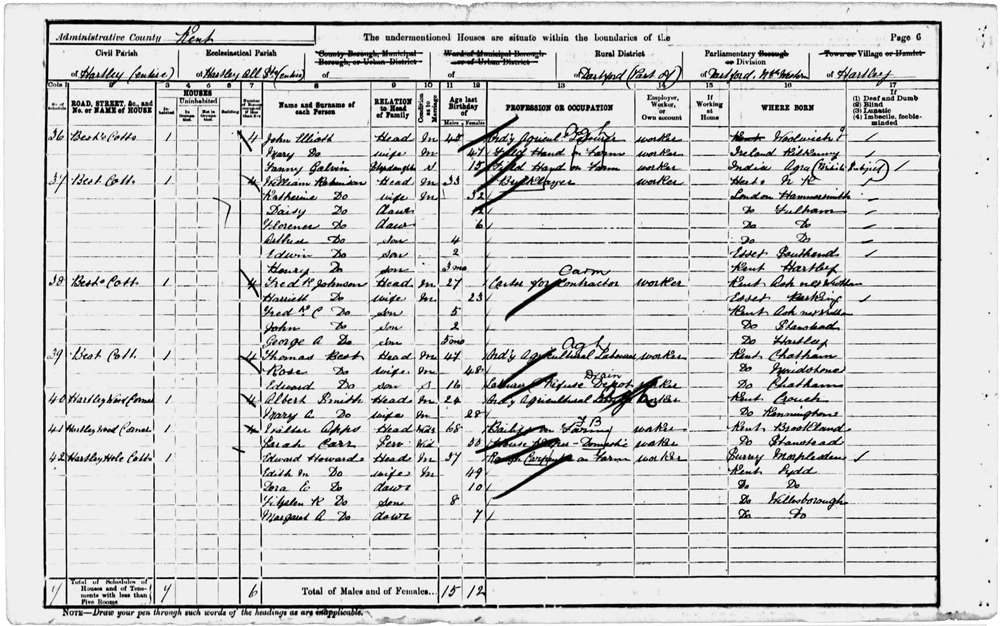 Administrative County Kent The undermentioned Houses are situate within the boundaries of the Page 6
Civil Parish Ecclesiastical Parish County Borough, Municipal Borough, or Urban District Ward of Municipal Borough or of Urban District Rural District Parliamentary Borough or Division Town or Village or Hamlet
of Hartley (entire) of Hartley All Sts (entire) of Dartford (Part of) of Dartford, of Hartley
Cols 1 2 3 4 5 6 7 8 9 10 11 12 13 14 15 16 17
No. of Schedule ROAD, STREET, &c., and No. or NAME of HOUSE HOUSES Inhabited Uninhabited In Occupation Not in Occupation Building Name and Surname of each Person RELATION to Head of Family Condition as to Marriage Age last Birthday of Males Females PROFESSION OR OCCUPATION Employer, Worker, or Own account If Working at Home WHERE BORN If (1) Deaf and Dumb (2) Blind (3) Lunatic (4) Imbecile, feeble-minded
36 Best's Cotts 1 4 John Elliott Head M 45 Ord'y Agricul Labourer agl worker Woolwich
Mary Do wife M 47 Field Hand on Farm worker Ireland Kilkenny
Fanny Galvin Stepdaughter S 15 Field Hand on Farm worker India Agra (British Subject)
37 Best Cott 1 4 William Robinson Head M 33 Bricklayer worker Herts N K
Katherine Do wife M 32 London Hammersmith
Daisy Do daur 12 Do Fulham
Florence Do daur 6 Do Do
Arthur Do son 4 Do Do
Edwin Do son 2 Essex Southend
Henry Do son 3 mo Kent Hartley
38 Bests Cott 1 4 Fred K Johnson Head M 27 Carter for Contractor worker Kent Ash
Harriett Do wife M 23 Essex Barking
Fred K C Do son 5 Kent Ash
John Do son 2 Do Stanstead
George A Do son 5 mo Do Hartley
39 Best Cott 1 4 Thomas Best Head M 47 Ord'y Agricultural Labourer agl worker Kent Chatham
Rose Do wife M 48 Do Maidstone
Edward Do son S 16 Labourer Refuse Depot Drain worker Do Chatham
40 Hartley Wood Corner 1 4 Albert Smith Head M 24 Ord'y Agricultural worker Kent Crouch
Mary A Do wife M 28 Do Kennington
41 Hartley Wood Corner 1 4 Walter Apps Head Widr 68 Bailiff on Farm worker Kent Brookland
Sarah Carr Serv Wid 50 House Keeper - Domestic worker Do Stanstead
42 Hartley Hole Cotts 1 Edward Howard Head M 37 Rough Carpenter on Farm worker Surrey
Edith M Do wife M 49 Kent Lydd
Dora E Do daur 10 Do Do
Do son 8 Do Willesborough
Margaret A Do daur 7 Do Do
7 Total of Schedules of Houses and of Tenements with less than Five Rooms 7 6 Total of Males and of Females... 15 12
NOTE—Draw your pen through such words of the headings as are inapplicable.